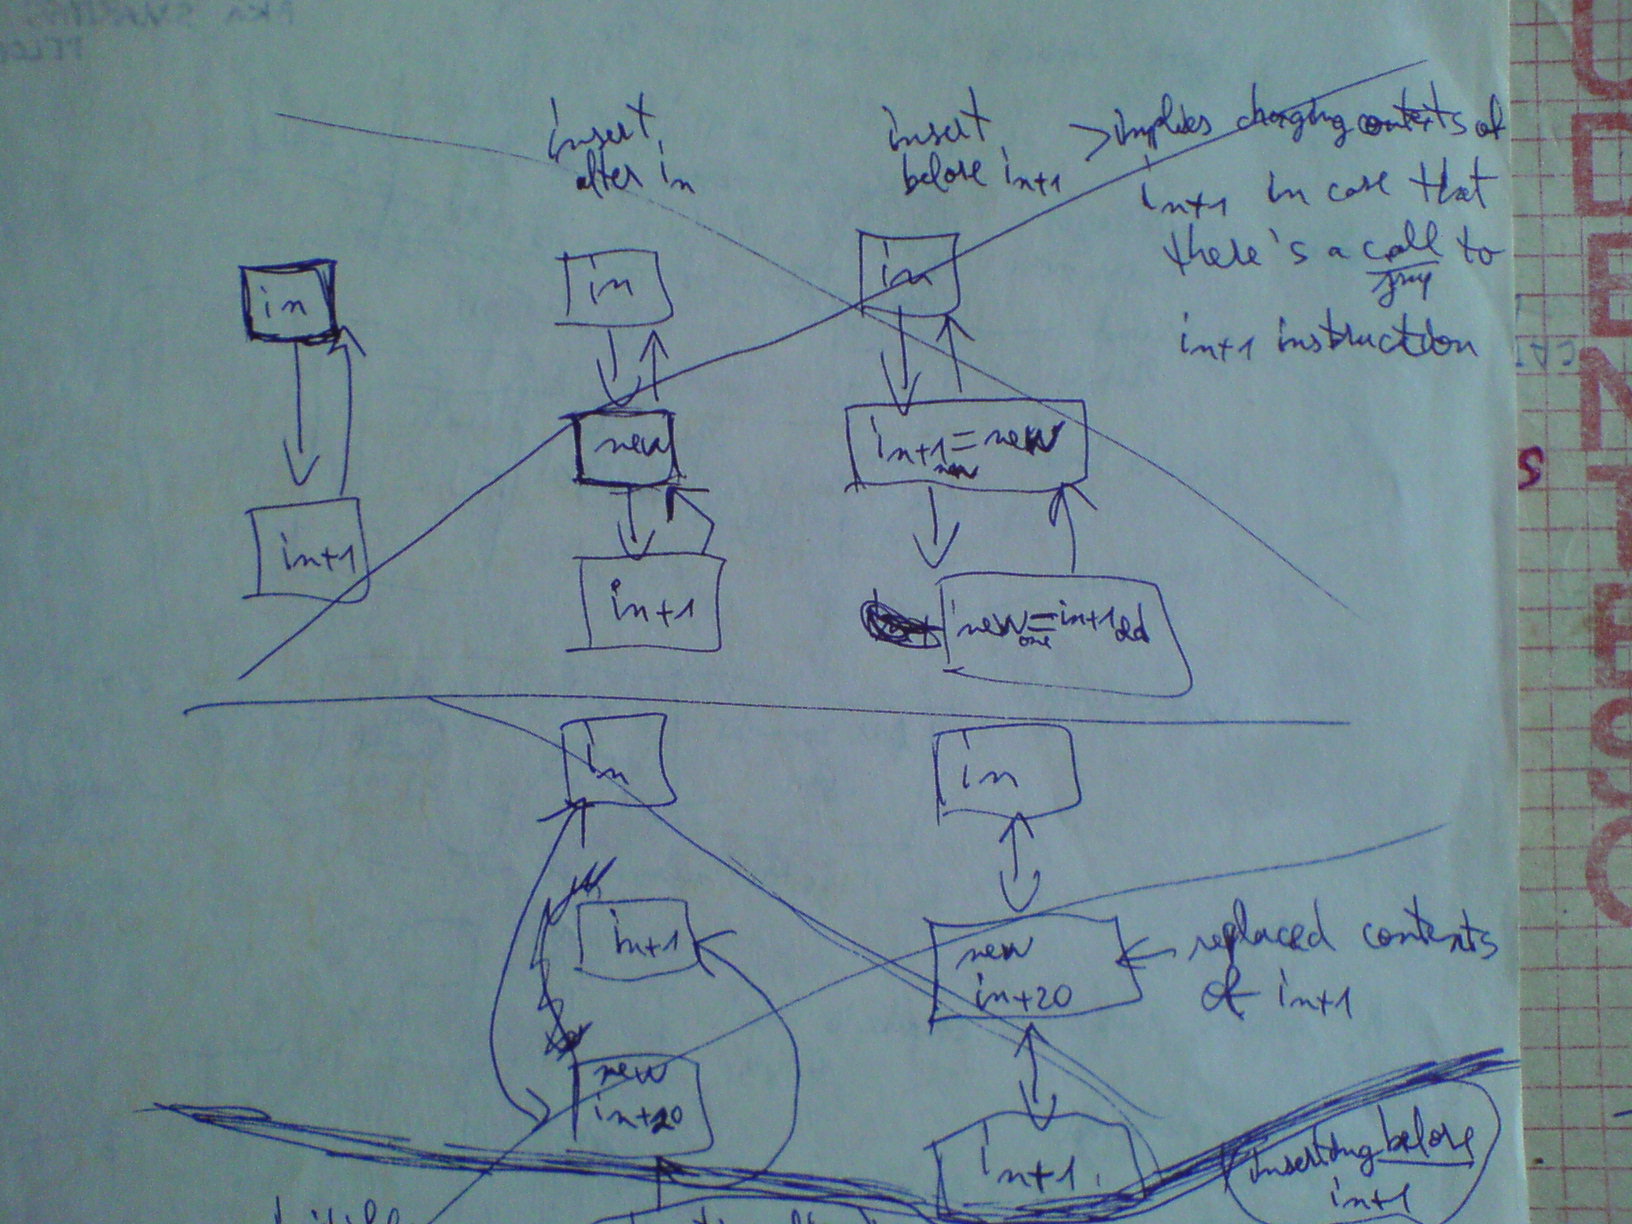 insert
after in
insert
before in+1
>implies changing contents of
in+1 in case that
there's a call to
jmp
in+1 instruction
in
in+1
in
new
in+1
in
in+1=new
new
new=in+1old
one
in
in+1
new
in+20
in
new
in+20
in+1
replaced contents
of in+1
inserting before
in+1